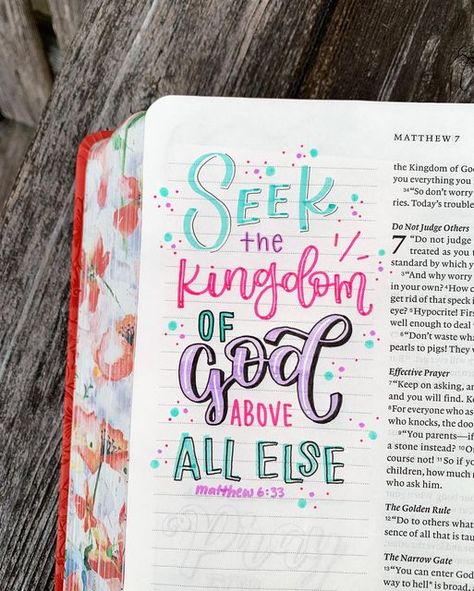 Seek
the
Kingdom
OF
God
ABOVE
ALL ELSE
matthew 6:33
Pray
MATTHEW 7
the Kingdom of God
you everything you
34“So don’t worry
ries. Today’s trouble
Do Not Judge Others
7 “Do not judge
treated as you
standard by which y
3“And why worry
in your own? 4How
get rid of that speck i
eye? 5Hypocrite! Firs
well enough to deal
6“Don’t waste what
pearls to pigs! They
Effective Prayer
7“Keep on asking, an
and you will find. K
8For everyone who as
who knocks, the doo
9“You parents—if
a stone instead? 10O
course not! 11So if yo
children, how much
who ask him.
The Golden Rule
12“Do to others what
sense of all that is tau
The Narrow Gate
13“You can enter God
way to hell* is broad